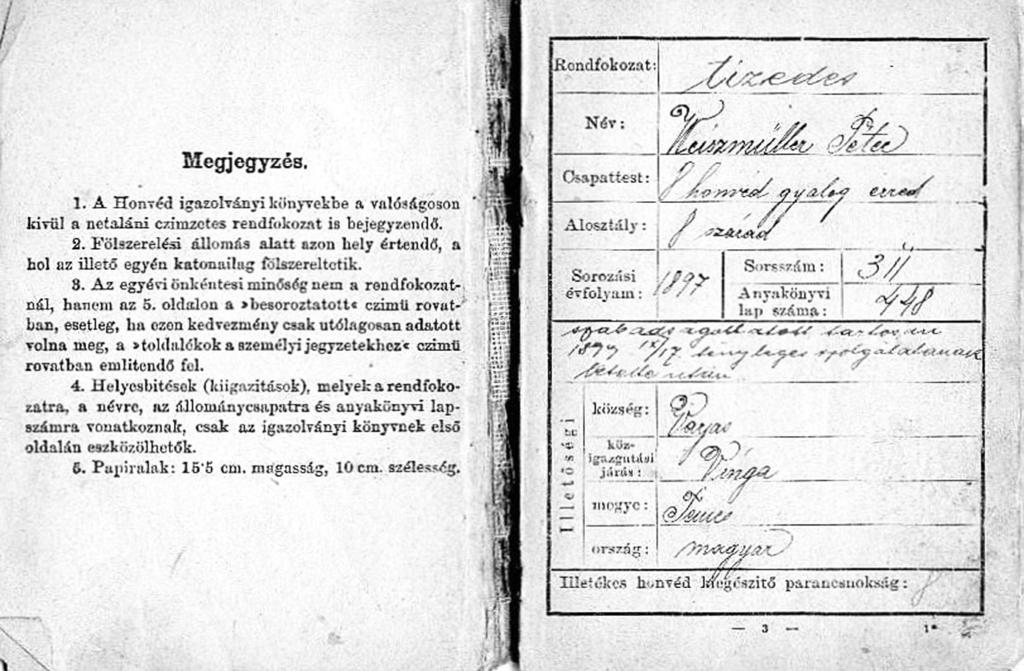 Megjegyzés.
1. A Honvéd igazolványi könyvekbe a valóságoson
kivül a netaláni czimzetes rendfokozat is bejegyzendő.
2. Fölszerelési állomás alatt azon hely értendő, a
hol az illető egyén katonailag fölszereltetik.
3. Az egyévi önkéntesi minőség nem a rendfokozat-
nál, hanem az 5. oldalon a »besoroztatott« czimü rovat-
ban, esetleg, ha ezen kedvezmény csak utólagosan adatott
volna meg, a »toldalékok a személyi jegyzetekhez« czimü
rovatban emlitendő fel.
4. Helyesbitések (kiigazitások), melyek a rendfoko-
zatra, a névre, az állománycsapatra és anyakönyvi lap-
számra vonatkoznak, csak az igazolványi könyvnek első
oldalán eszközölhetők.
5. Papiralak: 15·5 cm. magasság, 10 cm. szélesség.
Rendfokozat: tizedes
Név: Weiszmüller Péter
Csapattest: 8 honvéd gyalog ezred
Alosztály: 8 század
Sorozási évfolyam: 1897
Sorsszám: 311
Anyakönyvi lap száma: 448
szabadságoltatott tartósan
1899 IX/17. tényleges szolgálatának
letelte után
Illetőségi
község: Varjas
köz-
igazgatási
járás: Vinga
megye: Temes
ország: magyar
Illetékes honvéd kiegészitő parancsnokság: 8
— 3 — 1*